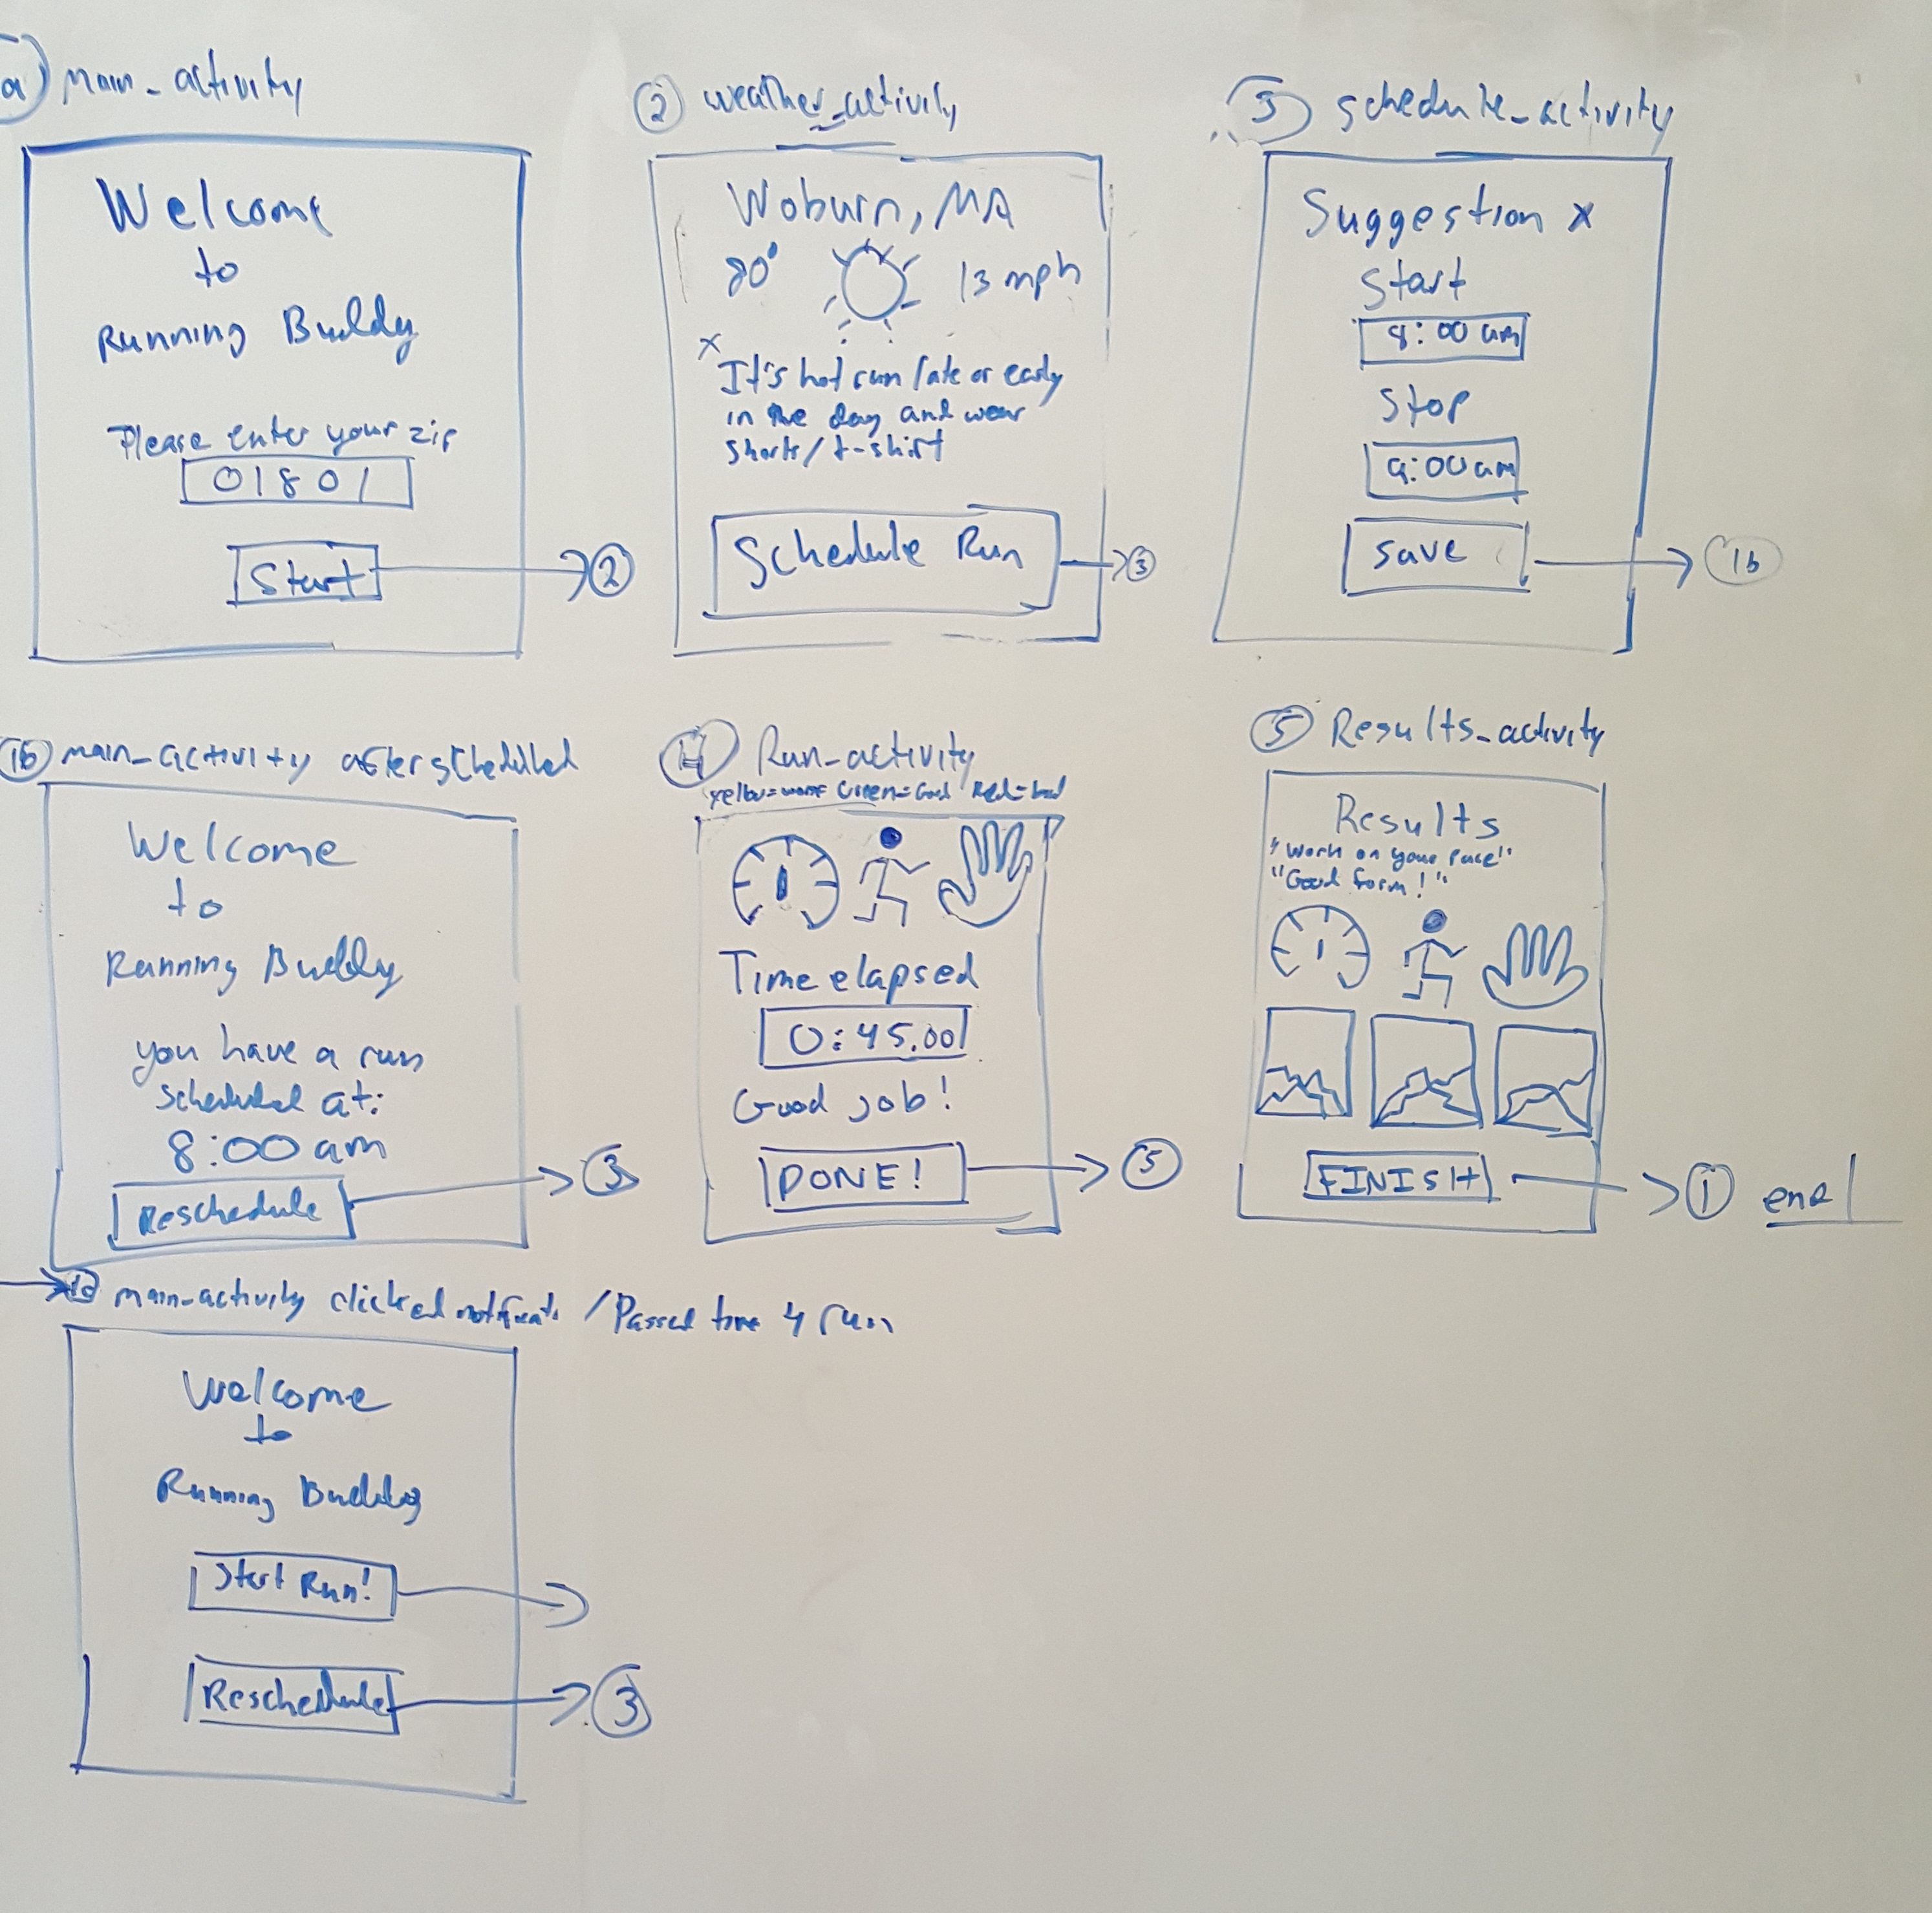 a main_activity
Welcome
to
Running Buddy
Please enter your zip
01801
Start
2
2 weather_activity
Woburn, MA
80° 13 mph
x
It's hot run late or early
in the day and wear
shorts/t-shirt
Schedule Run
3
3 schedule_activity
Suggestion x
Start
8:00 am
Stop
9:00 am
save
1b
1b main_activity after scheduled
Welcome
to
Running Buddy
you have a run
scheduled at:
8:00 am
Reschedule
3
4 Run_activity
Yellow= Green=Good Red=bad
Time elapsed
0:45.00
Good job!
DONE!
5
5 Results_activity
Results
"Work on your pace"
"Good form!"
FINISH
1 end
main_activity clicked / Passed time 4 run
Welcome
to
Running Buddy
Start Run!
Reschedule
3